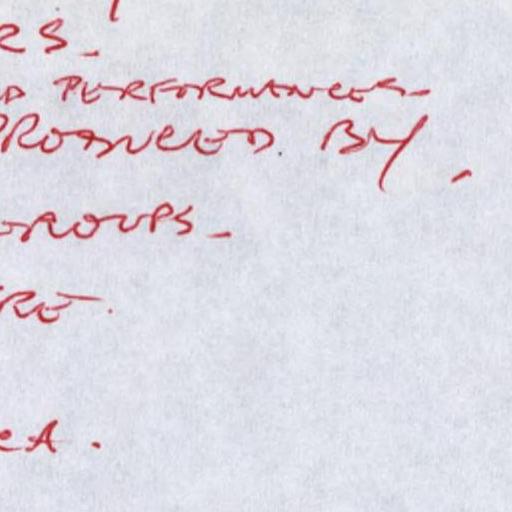 RS.
D PERFORMANCES-
PRODUCED. BY.
GROUPS-
RE.
CA.